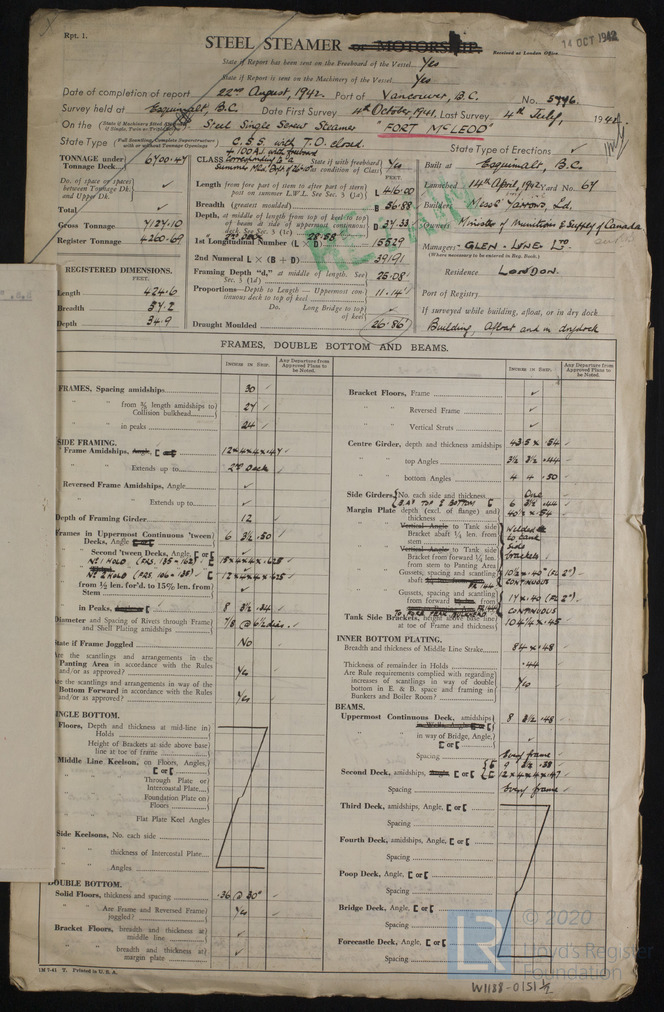 Rpt. 1.
14 OCT 1942
STEEL STEAMER or MOTORSHIP.
Received at London Office
State if Report has been sent on the Freeboard of the Vessel Yes
State if Report is sent on the Machinery of the Vessel Yes
Date of completion of report 22nd August, 1942. Port of Vancouver, B.C. No. 5796.
Survey held at Esquimalt, B.C. Date First Survey 4th October, 1941, Last Survey 4th July, 1942
On the Steel Single Screw Steamer "FORT McLEOD"
State Type C.S.S. with T.O. closed. State Type of Erections ✓
TONNAGE under Tonnage Deck 6700.47
Do. of space or spaces between Tonnage Dk. and Upper Dk.
Total
Gross Tonnage 7127.10
Register Tonnage 4260.69
REGISTERED DIMENSIONS.
FEET.
Length 424.6
Breadth 57.2
Depth 34.9
CLASS +100A1 with freeboard State if with freeboard as condition of Class Yes
Length from fore part of stem to after part of stern post on summer L.W.L. See Sec. 3 (1a) L 416.00
Breadth (greatest moulded) B 56.88
Depth, at middle of length from top of keel to top of beam at side of uppermost continuous deck. See Sec. 3 (1c) D 37.33
2nd Deck 28.58
1st Longitudinal Number (L × D) 15529
2nd Numeral L × (B + D) 39191
Framing Depth "d," at middle of length. See Sec. 3 (1d) 25.08
Proportions—Depth to Length—Uppermost continuous deck to top of keel 11.14
Do. Long Bridge to top of keel
Draught Moulded 26.86
Built at Esquimalt, B.C.
Launched 14th April, 1942 Yard No. 67
Builders Messrs Yarrows, Ld.
Owners Minister of Munitions & Supply of Canada
Managers GLEN-LINE LTD
(Where necessary to be entered in Reg. Book.)
Residence LONDON.
Port of Registry
If surveyed while building, afloat, or in dry dock
Building, Afloat and in drydock
FRAMES, DOUBLE BOTTOM AND BEAMS.
INCHES IN SHIP.
Any Departure from Approved Plans to be Noted.
FRAMES, Spacing amidships 30 ✓
" " from ⅗ length amidships to Collision bulkhead 27 ✓
" " in peaks 24 ✓
SIDE FRAMING.
Frame Amidships, Angle, [ or 12×4×4×.47 ✓
" " Extends up to 2nd Deck
Reversed Frame Amidships, Angle ✓
" " Extends up to ✓
Depth of Framing Girder 12
Frames in Uppermost Continuous 'tween Decks, Angle 6 3½ .50 ✓
" Second 'tween Decks, Angle, [ or [ ✓
No 1 HOLD (FRS. 135-162) [ 15×4×4×.625 ✓
No 2 HOLD (FRS. 106-135) [ 12×4×4×.425 ✓
" from ½ len. for'd. to 15% len. from Stem ✓
" in Peaks, 8 3½ .34
Diameter and Spacing of Rivets through Frame and Shell Plating amidships 7/8 @ 6½ dias. ✓
State if Frame Joggled No
Are the scantlings and arrangements in the Panting Area in accordance with the Rules and/or as approved? Yes
Are the scantlings and arrangements in way of the Bottom Forward in accordance with the Rules and/or as approved? Yes
SINGLE BOTTOM.
Floors, Depth and thickness at mid-line in Holds
" Height of Brackets at side above base line at toe of frame
Middle Line Keelson, on Floors, Angles, [ or [
" " Through Plate or Intercostal Plate
" " Foundation Plate on Floors
" " Flat Plate Keel Angles
Side Keelsons, No. each side
" " thickness of Intercostal Plate
" " Angles
DOUBLE BOTTOM.
Solid Floors, thickness and spacing .36 @ 30"
" " Are Frame and Reversed Frame joggled? Yes
Bracket Floors, breadth and thickness at middle line ✓
" " breadth and thickness at margin plate ✓
1M 7-41 T. Printed in U.S.A.
Bracket Floors, Frame ✓
" " Reversed Frame ✓
" " Vertical Struts ✓
Centre Girder, depth and thickness amidships 43.5 × .54
" " top Angles 3½ 3½ .44
" " bottom Angles 4 4 .50
Side Girders, No. each side and thickness One
6 3½ .44
Margin Plate depth (excl. of flange) and thickness 40½ × .54
" Vertical Angle to Tank side Bracket abaft ¼ len. from stem
" Vertical Angle to Tank side Bracket from forward ¼ len. from stem to Panting Area
Welded to tank side brackets
" Gussets, spacing and scantling abaft FR 44 10½×.40 (FL 2") CONTINUOUS
" Gussets, spacing and scantling from forward 17×.40 (FL 2") CONTINUOUS
Tank Side Brackets, height above base line at toe of Frame and thickness 104¼×.45
INNER BOTTOM PLATING.
Breadth and thickness of Middle Line Strake 84 × .48
Thickness of remainder in Holds .44
Are Rule requirements complied with regarding increases of scantlings in way of double bottom in E. & B. space and framing in Bunkers and Boiler Room? Yes
BEAMS.
Uppermost Continuous Deck, amidships 8 3½ .48
" " in way of Bridge, Angle, [ or [ ✓
Spacing Every frame
Second Deck, amidships, [ or [ 9 3½ .38
[ 12×4×4×.47
Spacing Every frame
Third Deck, amidships, Angle, [ or [
Spacing
Fourth Deck, amidships, Angle, [ or [
Spacing
Poop Deck, Angle, [ or [
Spacing
Bridge Deck, Angle, [ or [
Spacing
Forecastle Deck, Angle, [ or [
Spacing
LR © 2020
Lloyd's Register
Foundation
W1188-0151½